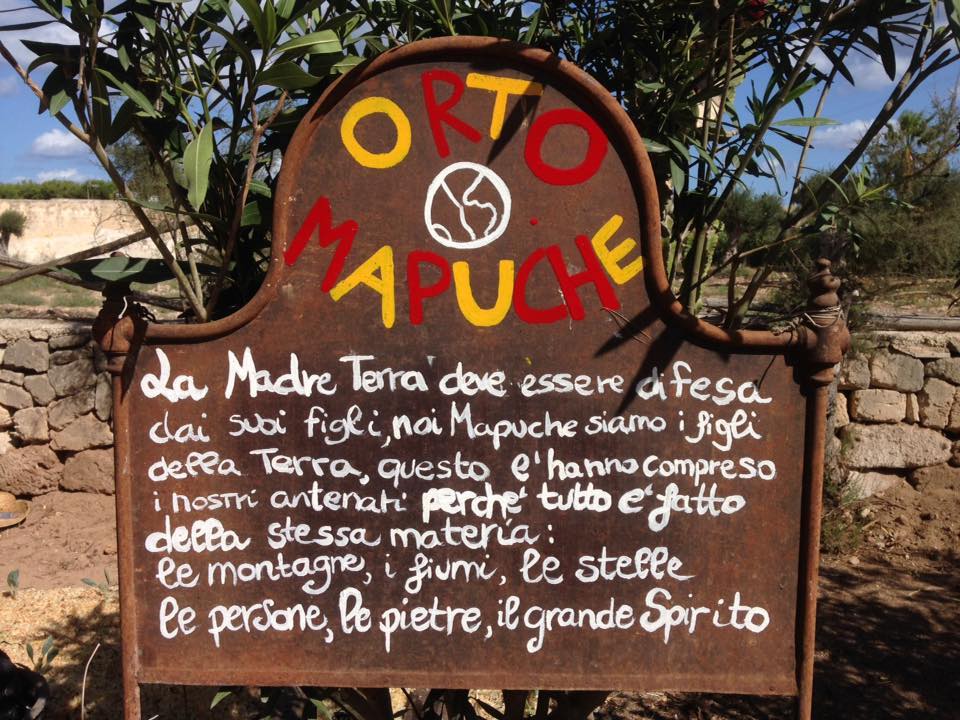 ORTO
MAPUCHE
La Madre Terra deve essere difesa
dai suoi figli, noi Mapuche siamo i figli
della Terra, questo l'hanno compreso
i nostri antenati perché tutto é fatto
della stessa materia:
le montagne, i fiumi, le stelle
le persone, le pietre, il grande Spirito